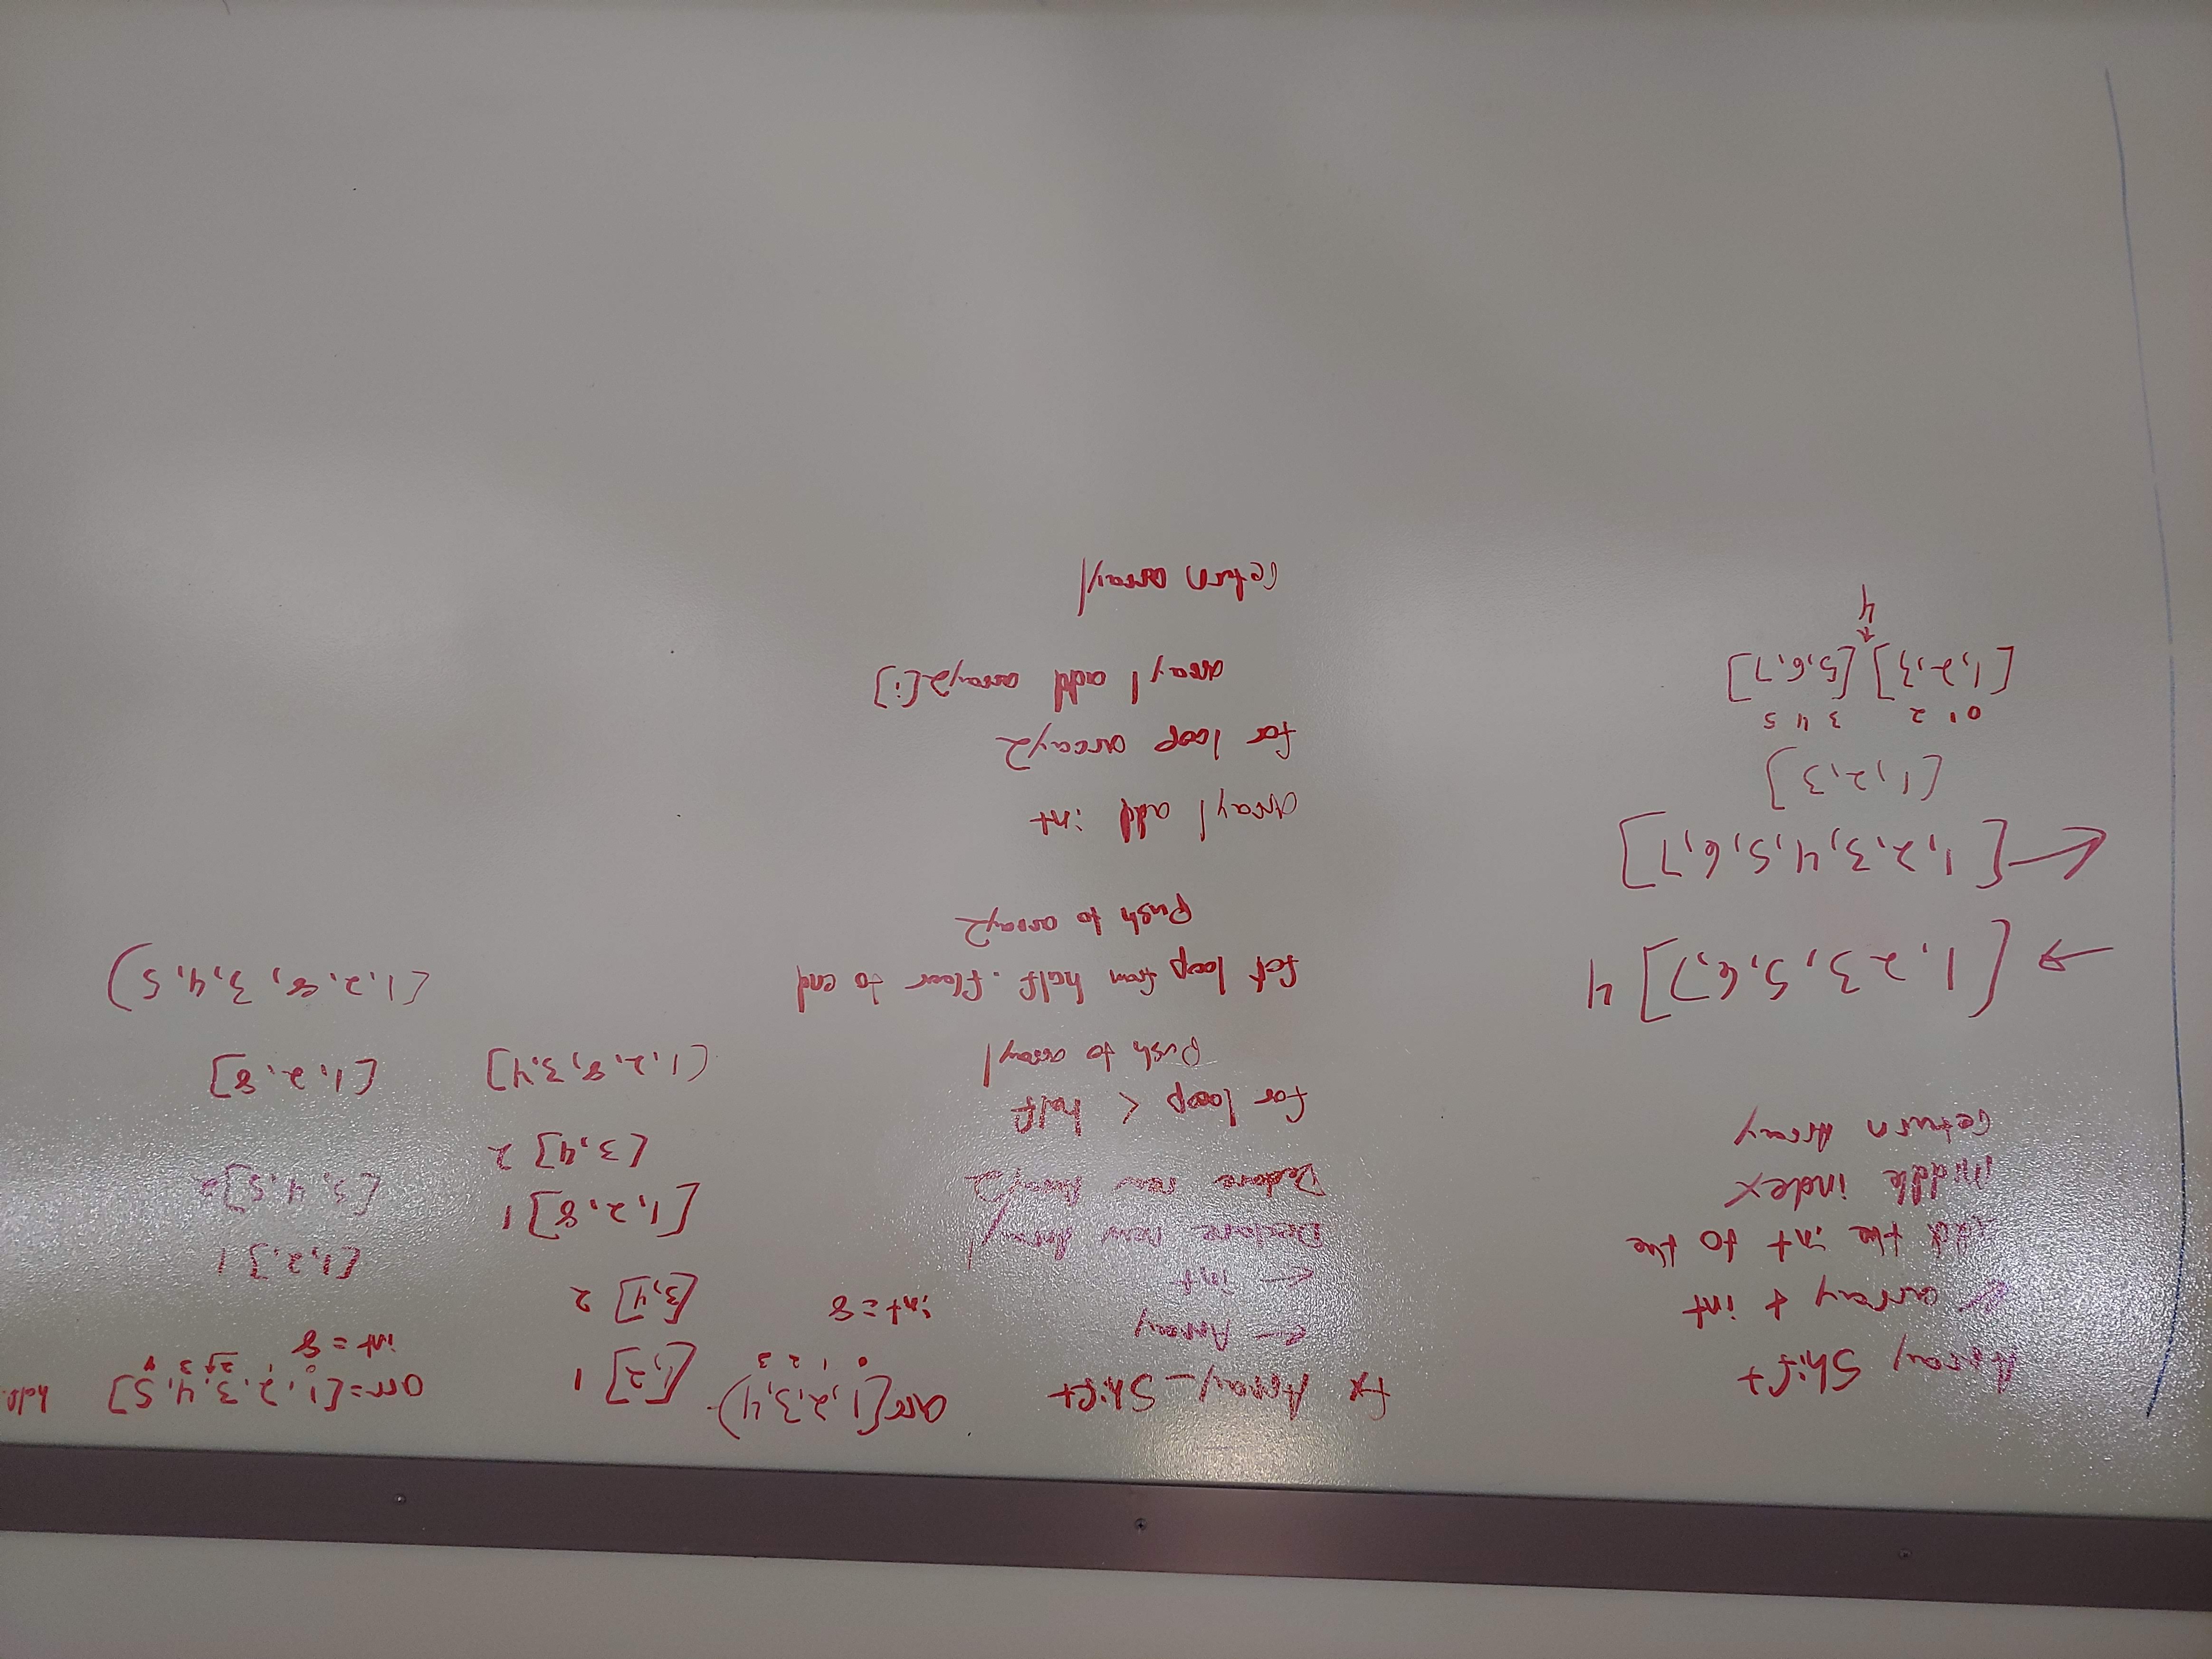 Array Shift
← array + int
add the int to the
middle index
return Array
→ [1, 2 3, 5, 6, 7] 4
← [1, 2, 3, 4, 5, 6, 7]
[1, 2, 3]
0 1 2 3 4 5
[1, 2, 3] [5, 6, 7]
↑
4
fx Array_Shift
← Array
← int
Declare new Array1
Declare new Array2
for loop < half
push to array1
for loop from half.floor to end
push to array2
array1 add int
for loop array2
array1 add array2[i]
return array1
arr[1, 2, 3, 4)
0 1 2 3
int = 8
[1, 2] 1
[3, 4] 2
[1, 2, 8] 1
[3, 4] 2
[1, 2, 8, 3, 4]
arr = [1, 2, 3, 4, 5] half
0 1 2 ↑ 3 4
int = 8
[1, 2,] 1
[3, 4, 5] 2
[1, 2, 8]
[1, 2, 8, 3, 4, 5)